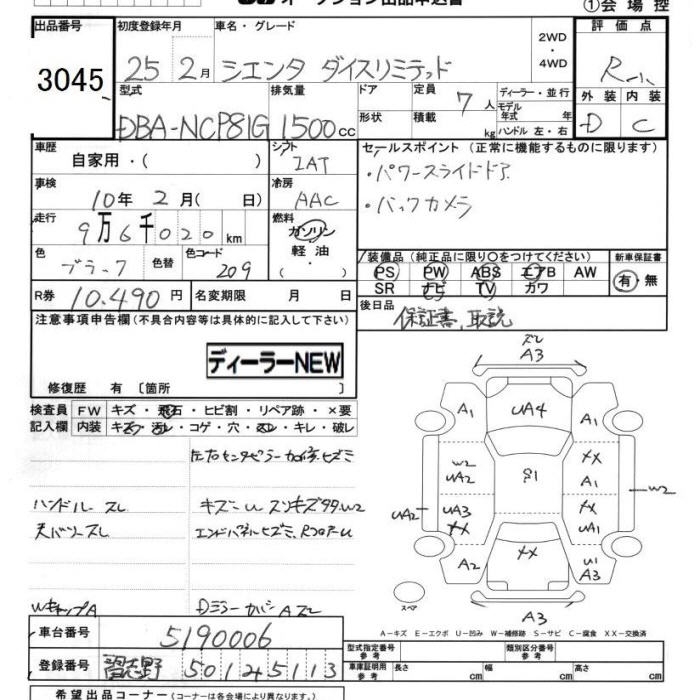 オークション出品申込書
①会場控
出品番号 初度登録年月 車名・グレード 評価点
3045 25 2月 シエンタ ダイスリミテッド 2WD・4WD R
型式 排気量 ドア 定員 7人 ディーラー・並行 外装 内装
DBA-NCP81G 1500cc 形状 積載 kg モデル年式 年 ハンドル 左・右 D C
車歴 シフト セールスポイント(正常に機能するものに限ります)
自家用・( ) IAT ・パワースライドドア
車検 冷房 ・バックカメラ
10年 2月( 日) AAC
走行 燃料
9万6千020km ガソリン
色 色コード 軽油
ブラック 色替 209 ・( )
装備品(純正品に限り○をつけてください) 新車保証書
PS PW ABS エアB AW 有・無
SR ナビ TV カワ
R券 10,490円 名変期限 月 日 後日品
保証書、取説
注意事項申告欄(不具合内容等は具体的に記入して下さい)
ディーラーNEW
修復歴 有〔箇所 〕
検査員 FW キズ・飛石・ヒビ割・リペア跡・×要
記入欄 内装 キズ・汚レ・コゲ・穴・スレ・キレ・破レ
ハンドルスレ キズ〜U スリキズ
エンドパネルヒズミ、RフロアーU
WキャップA Dミラーカバー Aズレ
ズレ
A3
A1 UA4 A1
W2 UA2 S1 XX A1
UA2 UA3 XX UA1 W2
A2 XX U1 A3
スペア A3
A-キズ E-エクボ U-凹み W-補修跡 S-サビ C-腐食 XX-交換済
車台番号 5190006
登録番号 習志野 501 そ 5113
型式指定番号 参考 類別区分番号 参考
車庫証明用 参考 長さ cm 幅 cm 高さ cm
希望出品コーナー(コーナーは各会場により異なります。)